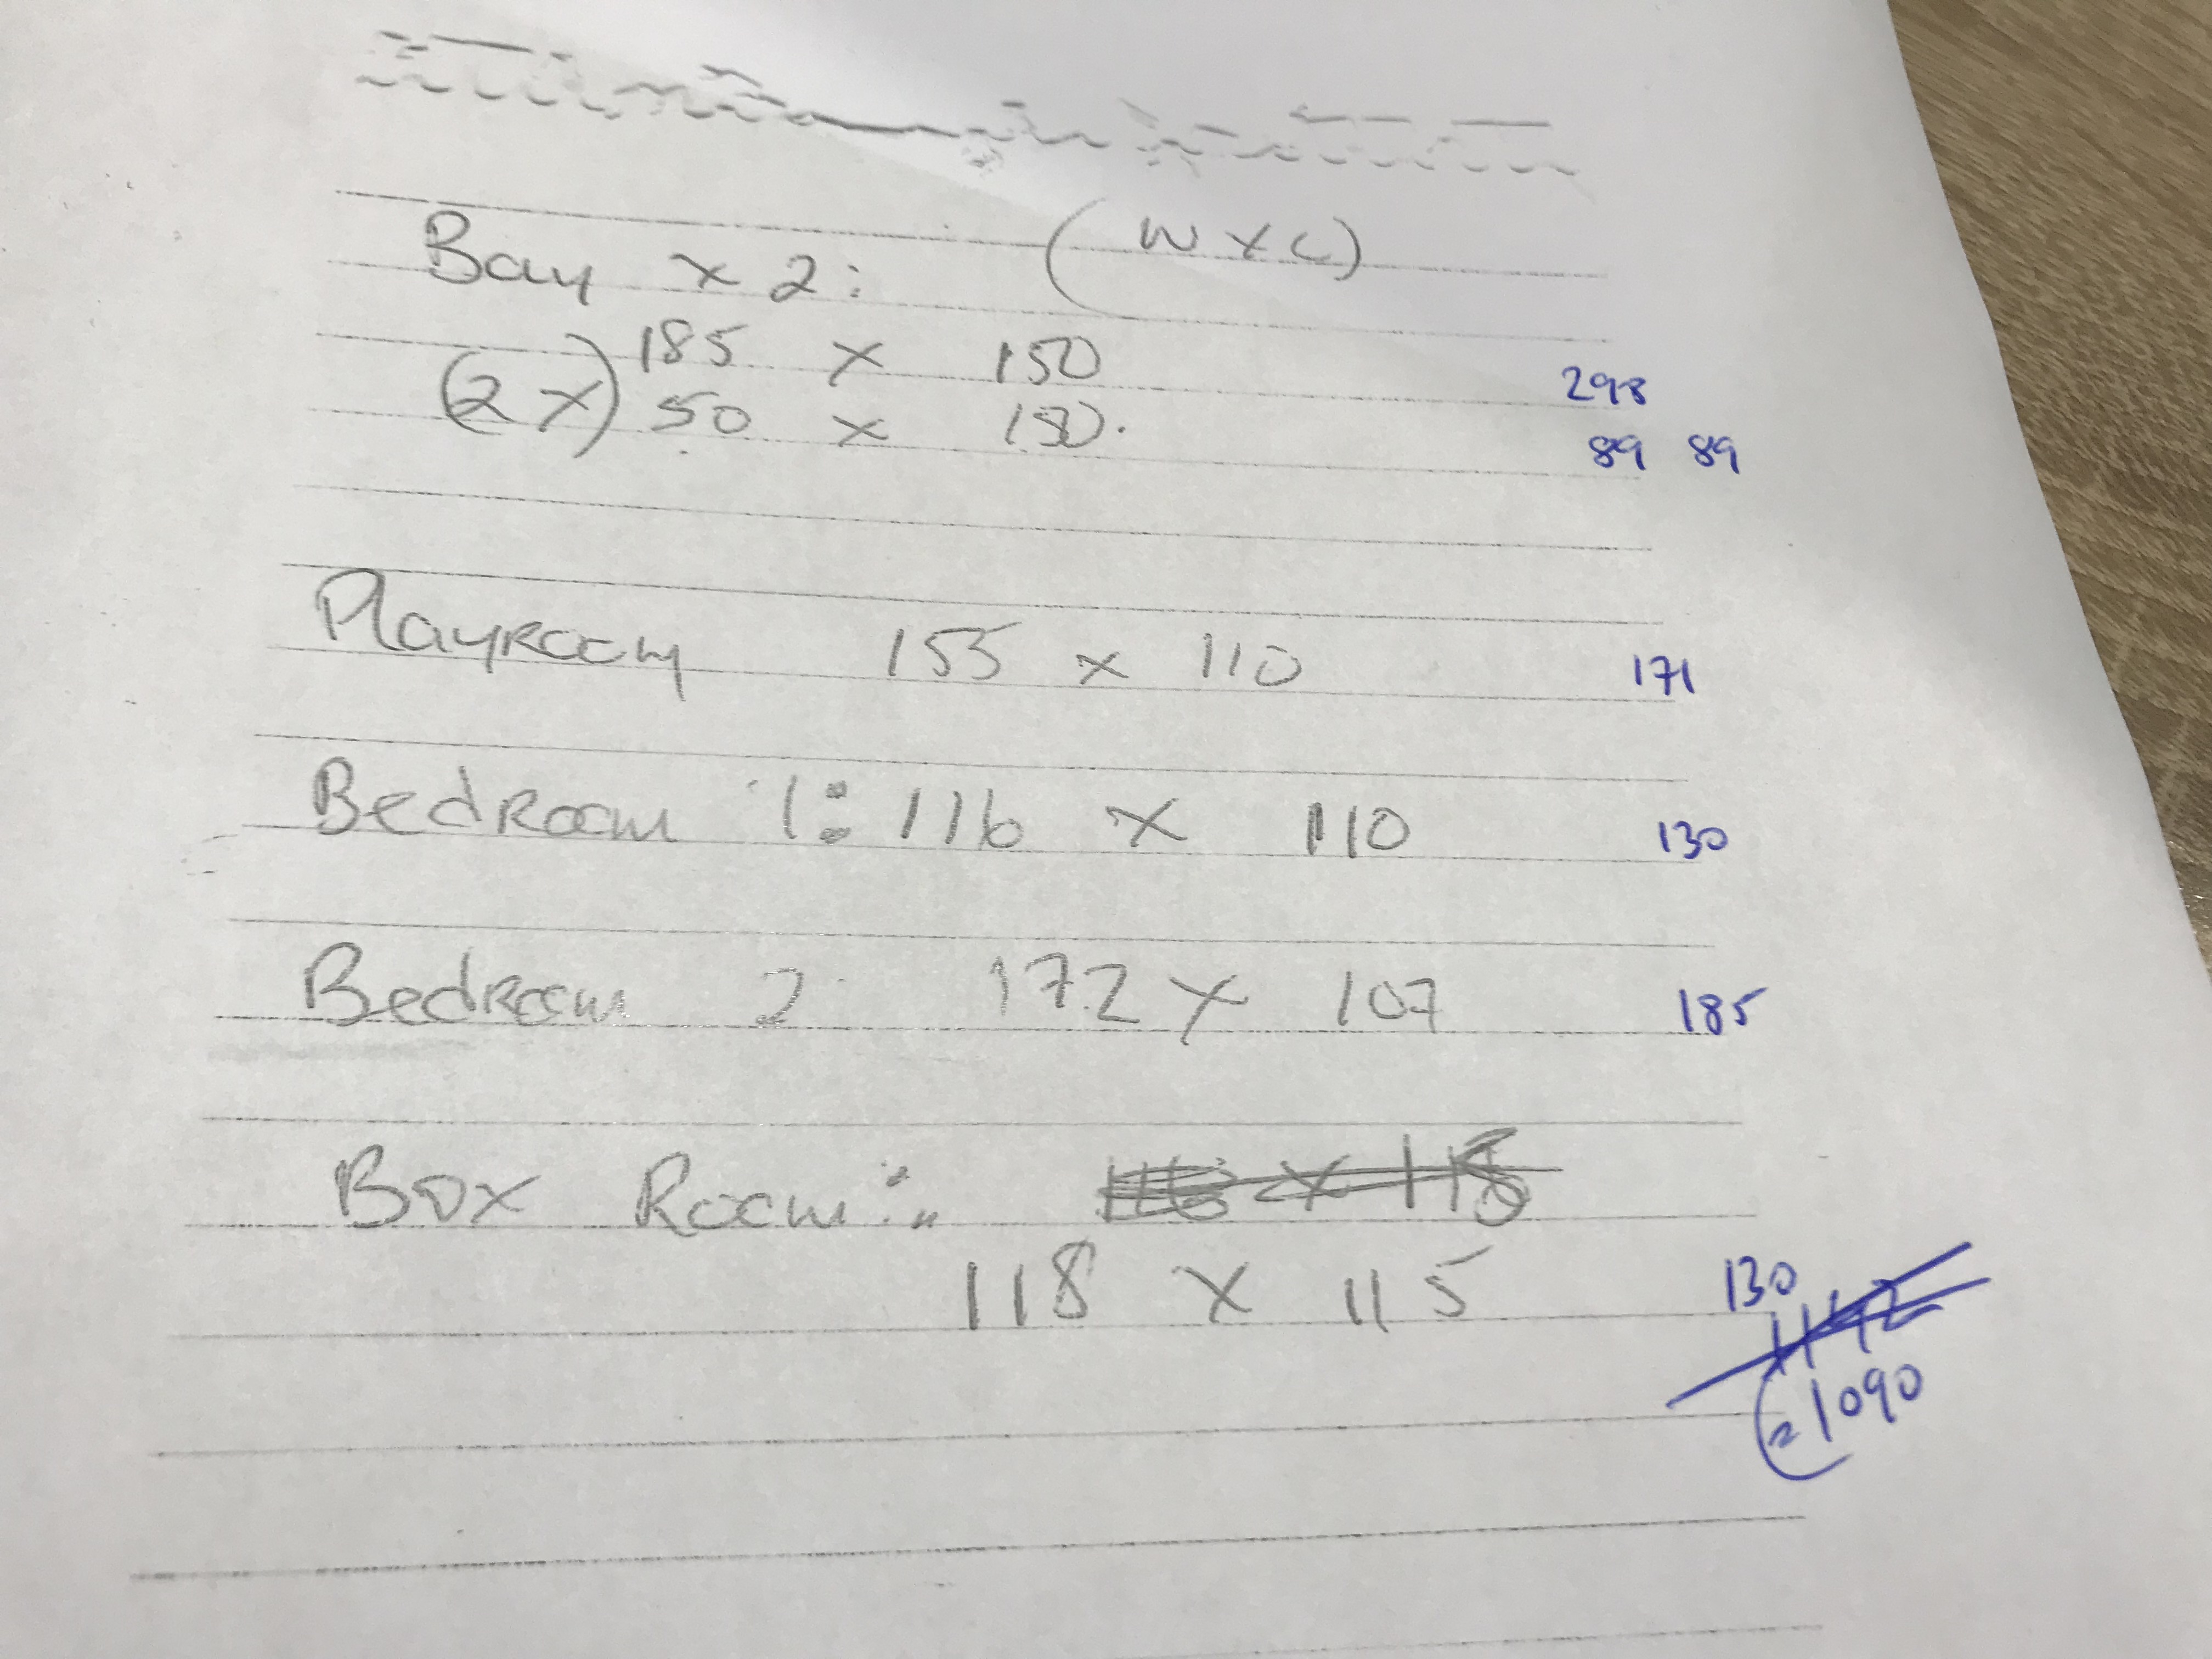 Bay x 2: (W x L)
185 x 150 298
(2 x) 50 x 150. 89 89
Playroom 155 x 110 171
Bedroom 1: 116 x 110 130
Bedroom 2: 172 x 107 185
Box Room:
118 x 115 130
= 1090